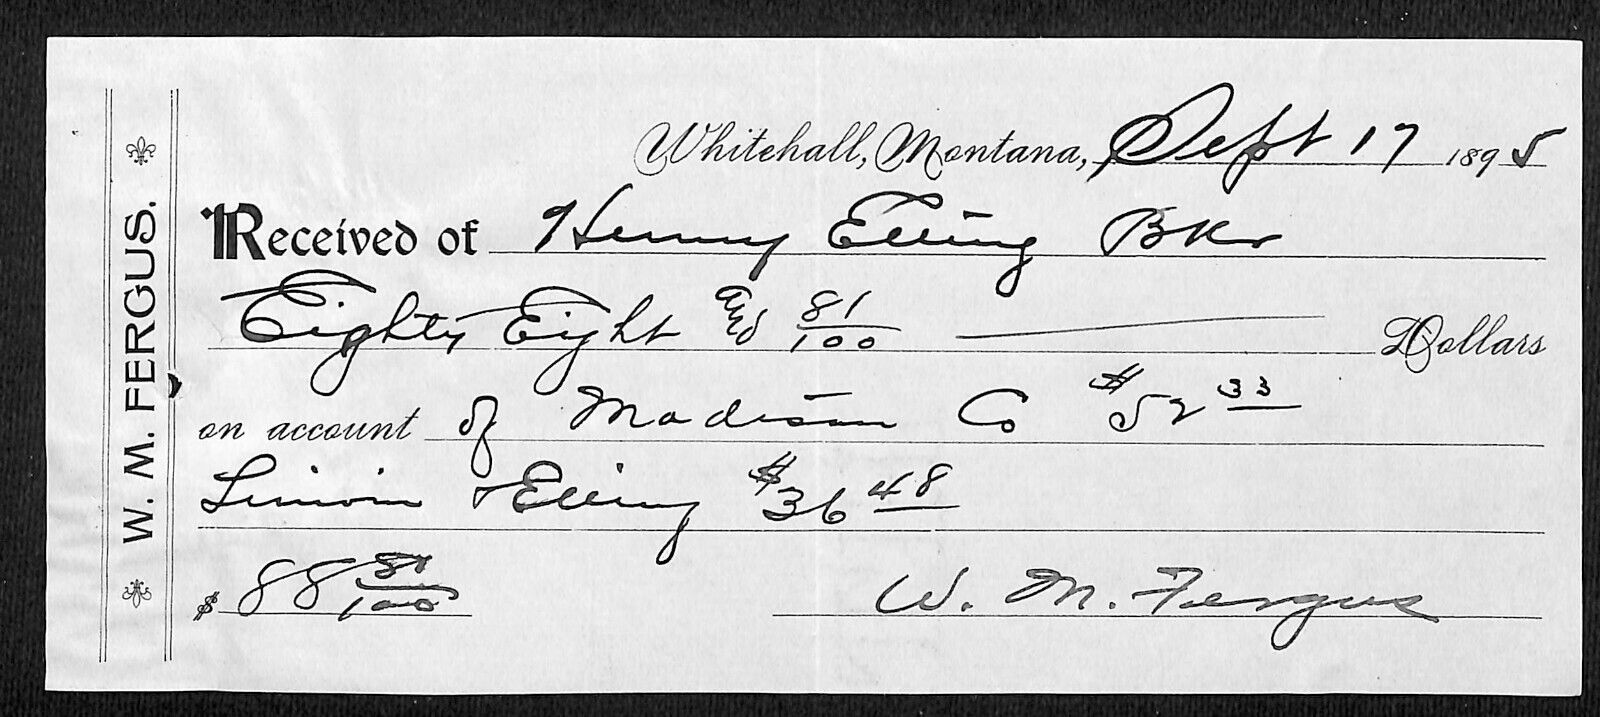 W. M. FERGUS.
Whitehall, Montana, Sept 17 1895
Received of Henry Elling Bkr
Eighty Eight and 81/100 Dollars
on account of Madison Co $52 33
& Elling $36 48
$ 88 81/100 W. M. Fergus